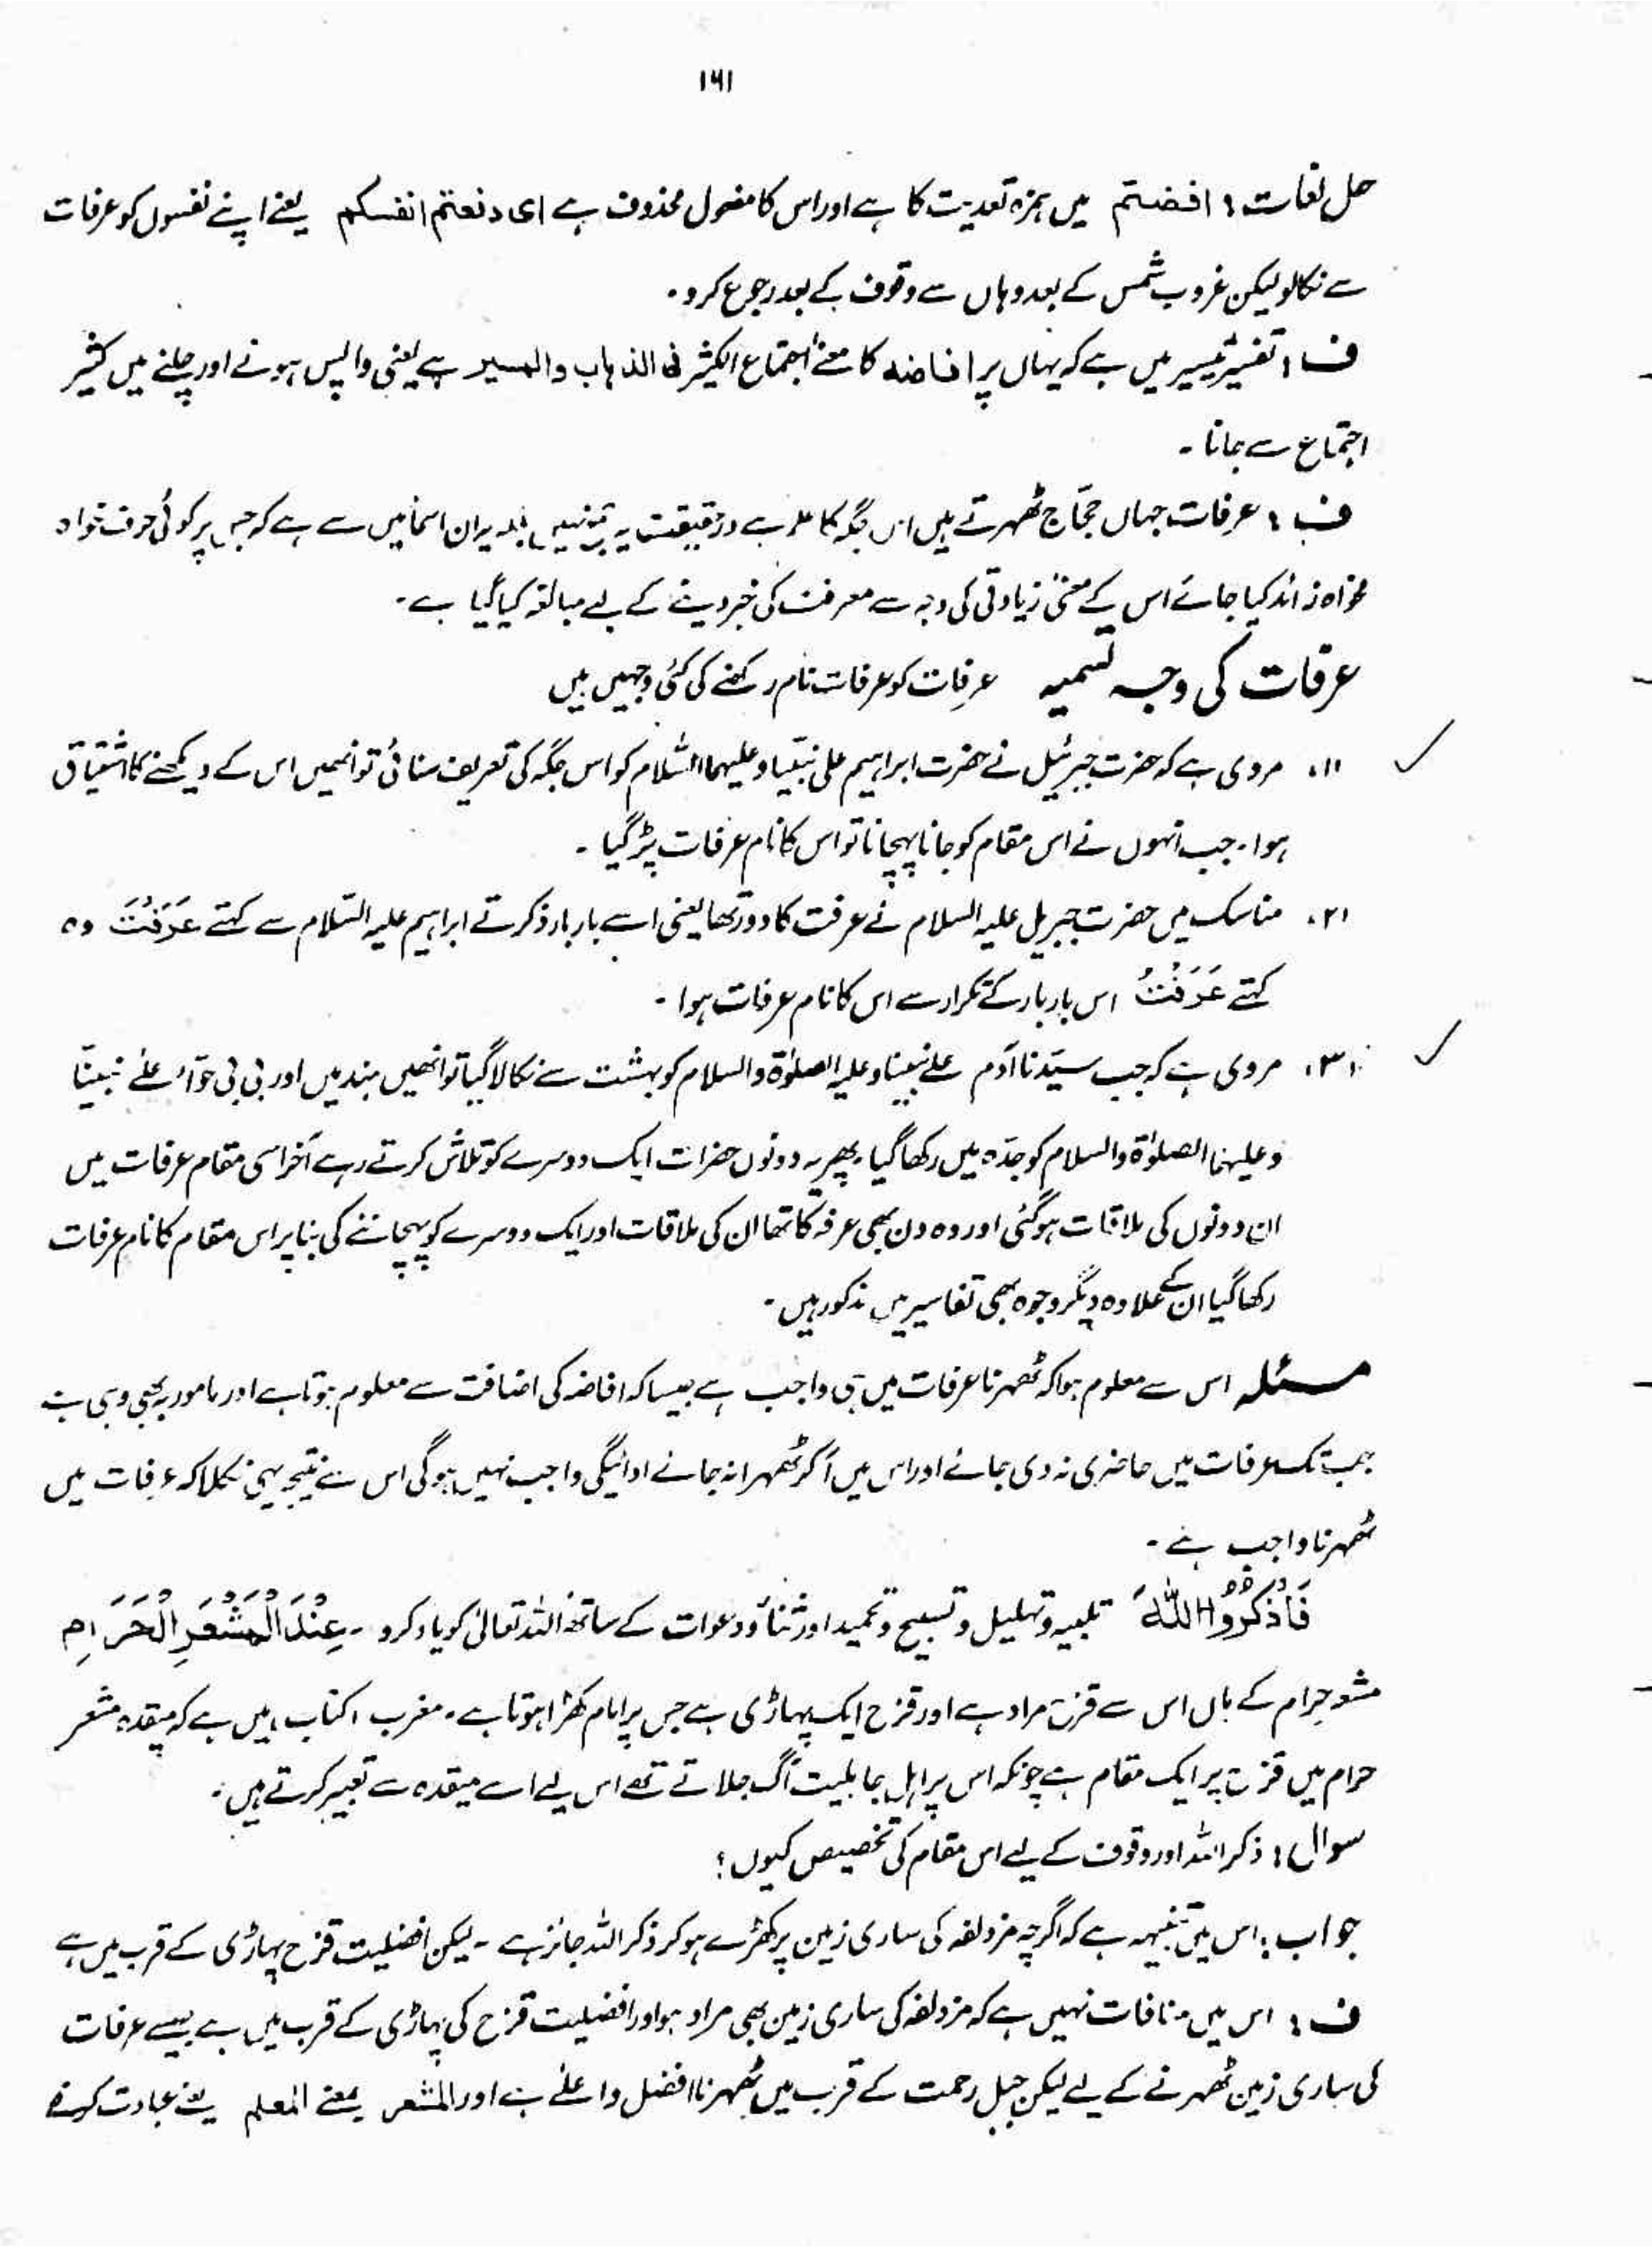 ۱۶۱
حل لغات ؛ افضتم میں ہمزہ تعدیت کا ہے اور اس کا مفعول محذوف ہے ای دفعتم انفسکم یعنے اپنے نفسوں کو عرفات
سے نکالو لیکن غروب شمس کے بعد وہاں سے وقوف کے بعد رجوع کرو۔
ف ؛ تفسیر تیسیر میں ہے کہ یہاں پر افاضہ کا معنیٰ اجتماع الکثیر فی الذہاب والمسیر ہے یعنی واپس ہونے اور چلنے میں کثیر
اجتماع سے جانا۔
ف ؛ عرفات جہاں حجّاج ٹھہرتے ہیں اس جگہ کا علم ہے درحقیقت یہ نہیں بلکہ یہ ان اسماء میں سے ہے کہ جس پر کوئی حرف خواہ
مخواہ زائد کیا جائے اس کے معنیٰ زیادتی کی وجہ سے معرفت کی خبر دینے کے لیے مبالغہ کیا گیا ہے۔
عرفات کی وجہ تسمیہ عرفات کو عرفات نام رکھنے کی کئی وجہیں ہیں
(۱) مروی ہے کہ حضرت جبرئیل نے حضرت ابراہیم علی نبیّنا وعلیہما السّلام کو اس جگہ کی تعریف سنائی تو انہیں اس کے دیکھنے کا اشتیاق
ہوا۔ جب انہوں نے اس مقام کو جانا پہچانا تو اس کا نام عرفات پڑ گیا۔
(۲) مناسک میں حضرت جبریل علیہ السلام نے عرفت کا دور رکھا یعنی اسے بار بار ذکر کرتے ابراہیم علیہ السّلام سے کہتے عَرَفْتَ وہ
کہتے عَرَفْتُ اس بار بار کے تکرار سے اس کا نام عرفات ہوا۔
(۳) مروی ہے کہ جب سیّدنا آدم علےٰ نبینا وعلیہ الصلوٰۃ والسلام کو بہشت سے نکالا گیا تو انھیں ہند میں اور بی بی حوّاء علےٰ نبینّا
وعلیہما الصلوٰۃ والسلام کو جدّہ میں رکھا گیا۔ پھر یہ دونوں حضرات ایک دوسرے کو تلاش کرتے رہے آخر اسی مقام عرفات میں
ان دونوں کی ملاقات ہو گئی اور وہ دن بھی عرفہ کا تھا ان کی ملاقات اور ایک دوسرے کو پہچاننے کی بنا پر اس مقام کا نام عرفات
رکھا گیا ان کے علاوہ دیگر وجوہ بھی تفاسیر میں مذکور ہیں۔
مسئلہ اس سے معلوم ہوا کہ ٹھہرنا عرفات میں ہی واجب ہے جیسا کہ افاضہ کی اضافت سے معلوم ہوتا ہے اور مامور بہ بھی وہی ہے
جب تک عرفات میں حاضری نہ دی جائے اور اس میں آکر ٹھہرا نہ جائے ادائیگی واجب نہیں ہو گی اس سے نتیجہ یہی نکلا کہ عرفات میں
ٹھہرنا واجب ہے۔
فَاذْکُرُوا اللّٰہَ تلبیہ و تہلیل و تسبیح و تحمید اور ثناء و دعوات کے ساتھ اللہ تعالیٰ کو یاد کرو۔ عِنْدَ الْمَشْعَرِ الْحَرَامِ
مشعر حرام کے ہاں اس سے قزح مراد ہے اور قزح ایک پہاڑی ہے جس پر امام کھڑا ہوتا ہے۔ مغرب (کتاب) میں ہے کہ میقدہ مشعر
حرام میں قزح پر ایک مقام ہے چونکہ اس پر اہل جاہلیت آگ جلاتے تھے اس لیے اسے میقدہ سے تعبیر کرتے ہیں۔
سوال ؛ ذکر اللہ اور وقوف کے لیے اس مقام کی تخصیص کیوں؟
جواب ؛ اس میں تنبیہہ ہے کہ اگرچہ مزدلفہ کی ساری زمین پر کھڑے ہو کر ذکر اللہ جائز ہے۔ لیکن افضلیت قزح پہاڑی کے قرب میں ہے
ف ؛ اس میں منافات نہیں ہے کہ مزدلفہ کی ساری زمین بھی مراد ہو اور افضلیت قزح کی پہاڑی کے قرب میں ہے جیسے عرفات
کی ساری زمین ٹھہرنے کے لیے لیکن جبل رحمت کے قرب میں ٹھہرنا افضل و اعلےٰ ہے اور المشعر بمعنے المعلم یعنے عبادت کرنے